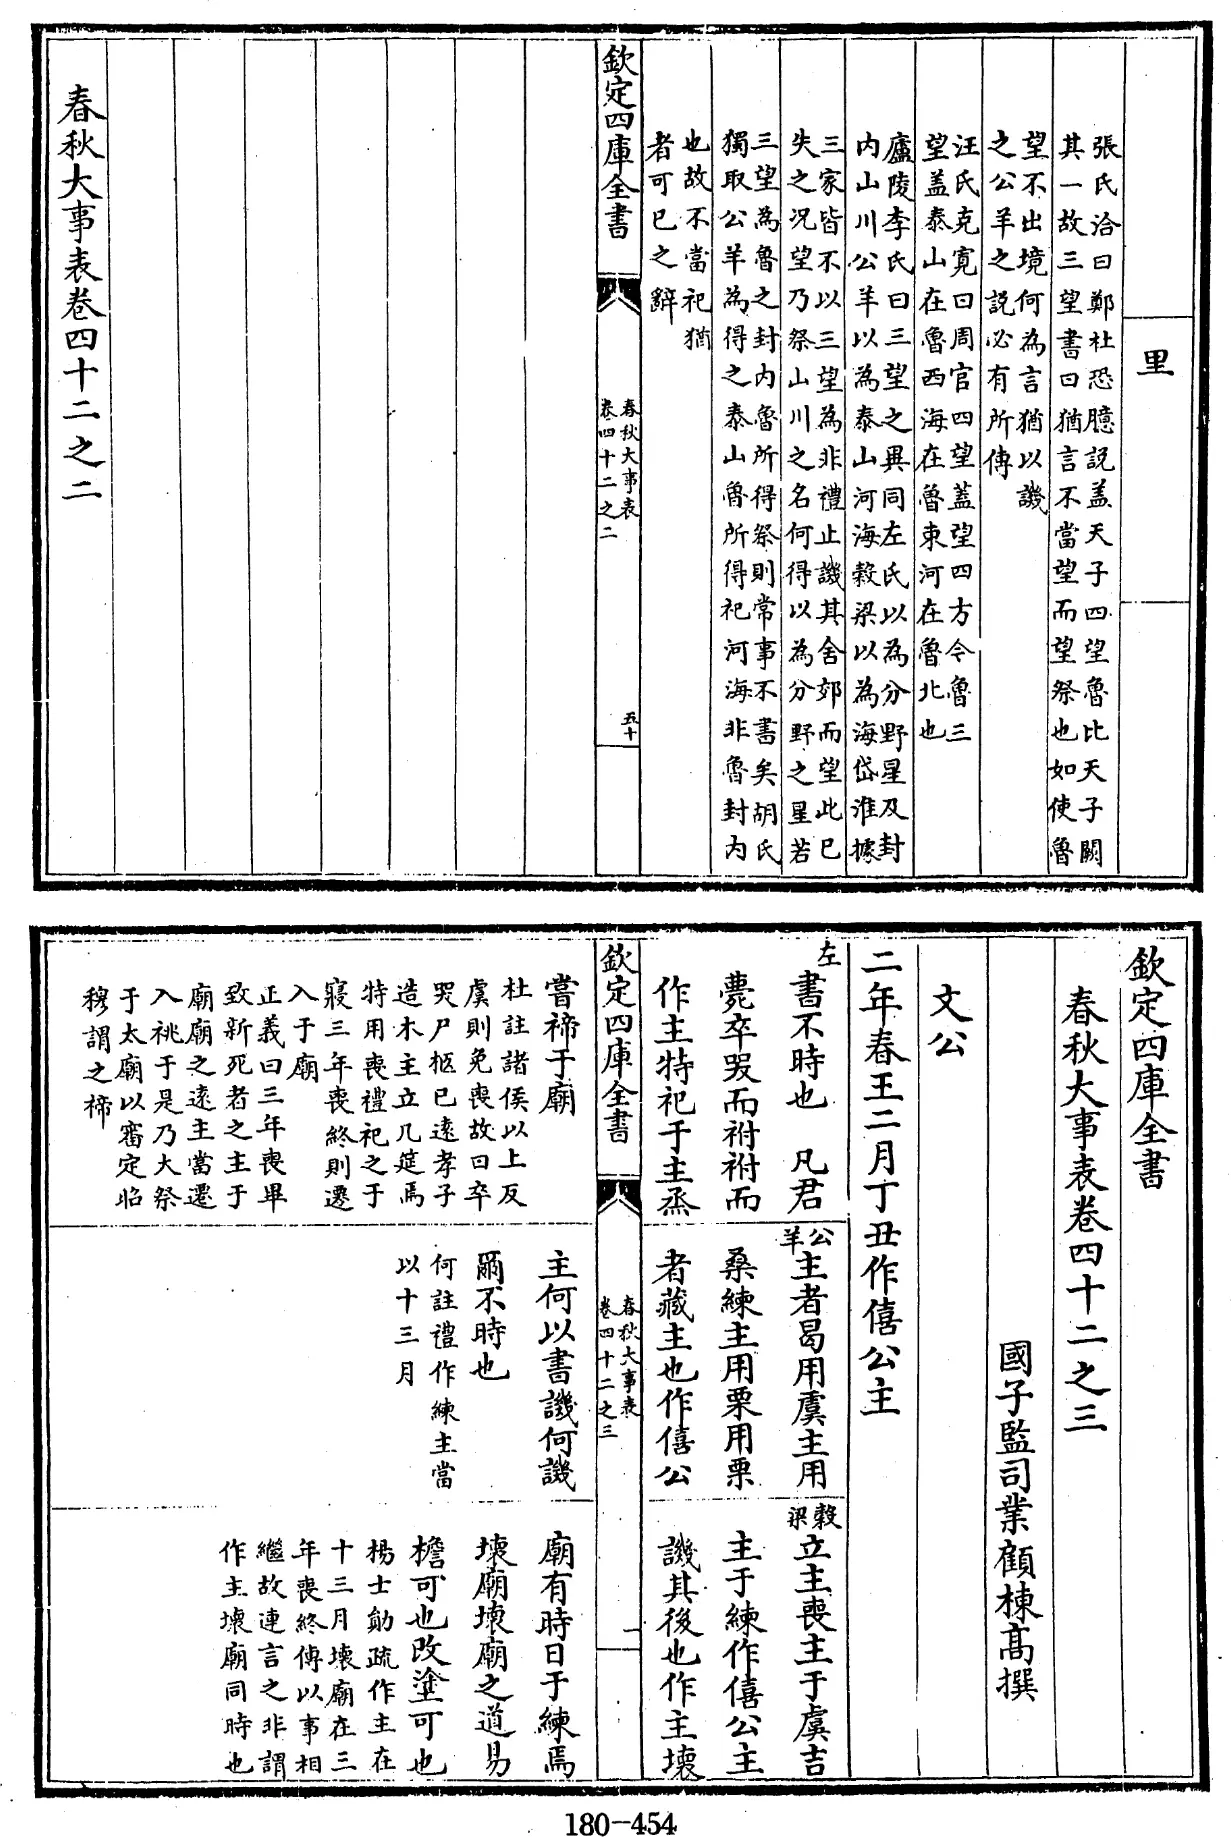 里
張氏洽曰鄭杜恐臆説盖天子四望魯比天子闕
其一故三望書曰猶言不當望而望祭也如使魯
望不出境何為言猶以譏
之公羊之説必有所傳
汪氏克寛曰周官四望蓋望四方令魯三
望盖泰山在魯西海在魯東河在魯北也
廬陵李氏曰三望之異同左氏以為分野星及封
内山川公羊以為泰山河海穀梁以為海岱淮據
三家皆不以三望為非禮止譏其舍郊而望此已
失之况望乃祭山川之名何得以為分野之星若
三望為魯之封内魯所得祭則常事不書矣胡氏
獨取公羊為得之泰山魯所得祀河海非魯封内
也故不當祀猶
者可已之辭
欽定四庫全書
春秋大事表
卷四十二之二
五十
春秋大事表卷四十二之二
欽定四庫全書
春秋大事表卷四十二之三
國子監司業顧棟高撰
文公
二年春王二月丁丑作僖公主
左
書不時也 凡君
薨卒哭而祔祔而
作主特祀于主烝
嘗禘于廟
杜註諸侯以上反
虞則免喪故曰卒
哭尸柩已逺孝子
造木主立几筵焉
特用喪禮祀之于
寢三年喪終則遷
入于廟
正義曰三年喪畢
致新死者之主于
廟廟之逺主當遷
入祧于是乃大祭
于太廟以審定昭
穆謂之禘
公羊
主者曷用虞主用
桑練主用栗用栗
者藏主也作僖公
主何以書譏何譏
爾不時也
何註禮作練主當
以十三月
穀梁
立主喪主于虞吉
主于練作僖公主
譏其後也作主壞
廟有時日于練焉
壞廟壞廟之道易
檐可也改塗可也
楊士勛疏作主在
十三月壞廟在三
年喪終傳以事相
繼故連言之非謂
作主壞廟同時也
欽定四庫全書
春秋大事表
卷四十二之三
一
180-454